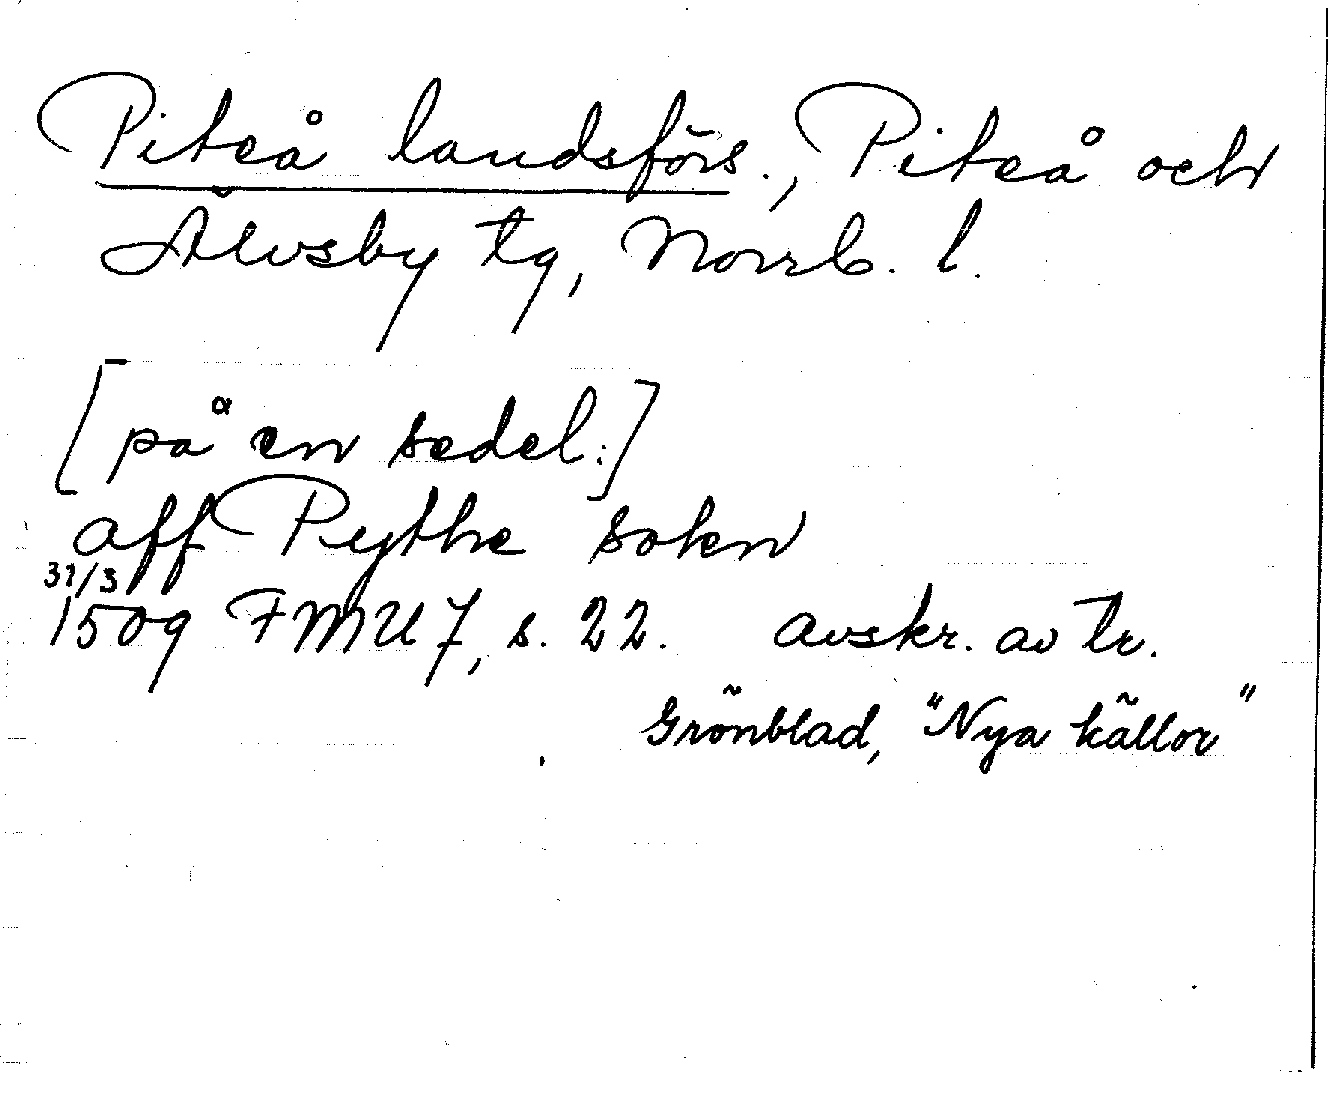 Piteå landsförs., Piteå och
Älvsby tg, Norrb. l.
[på en sedel:]
aff Pythe soken
31/3
1509 FMU 7, s. 22. avskr. av tr.
Grönblad, "Nya källor"